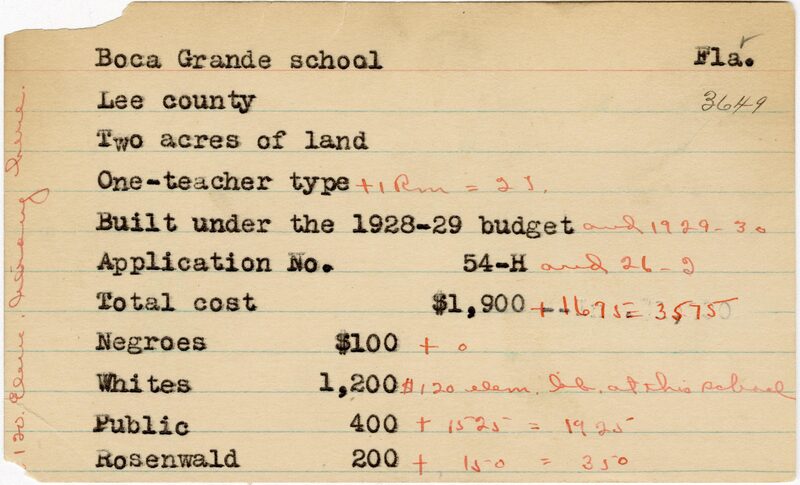 Boca Grande school Fla.
Lee county 3649
Two acres of land
One-teacher type +1 Rm = 2 T.
Built under the 1928-29 budget and 1929-30
Application No. 54-H and 26-2
Total cost $1,900 + 1675 = 3,575
Negroes $100 + 0
Whites 1,200 $120 elem. lib. at this school
Public 400 + 1525 = 1925
Rosenwald 200 + 150 = 350
120. Elem. library here.